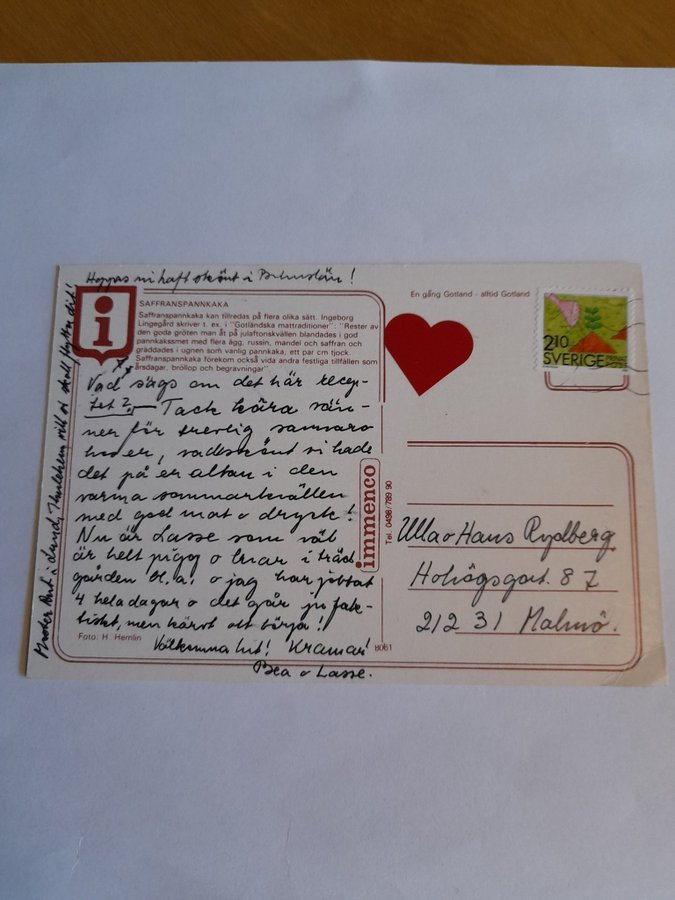 Hoppas ni haft skönt i Bohuslän!
SAFFRANSPANNKAKA
Saffranspannkaka kan tillredas på flera olika sätt. Ingeborg
Lingegård skriver t. ex. i "Gotländska mattraditioner": "Rester av
den goda gröten man åt på julaftonskvällen blandades i god
pannkakssmet med flera ägg, russin, mandel och saffran och
gräddades i ugnen som vanlig pannkaka, ett par cm tjock.
Saffranspannkaka förekom också vida andra festliga tillfällen som
årsdagar, bröllop och begravningar".
Vad sägs om det här recep-
tet? Tack kära vän-
ner för trevlig samvaro
hos er, vad skönt vi hade
det på er altan i den
varma sommarkvällen
med god mat o dryck!
Nu är Lasse som väl
är helt pigg o knar i träd-
gården bl.a. o jag har jobbat
4 hela dagar o det går ju fak-
tiskt, men hårt att börja!
Välkomna hit! Kramar!
Bea o Lasse.
Foto: H. Hemlin
8061
i Lund, vill vi
En gång Gotland - alltid Gotland
2,10
SVERIGE
PRIVAT
POST
immenco
Tel. 0498/789 90
Ulla o Hans Rydberg
Holhögsgat. 8 Z
212 31 Malmö.